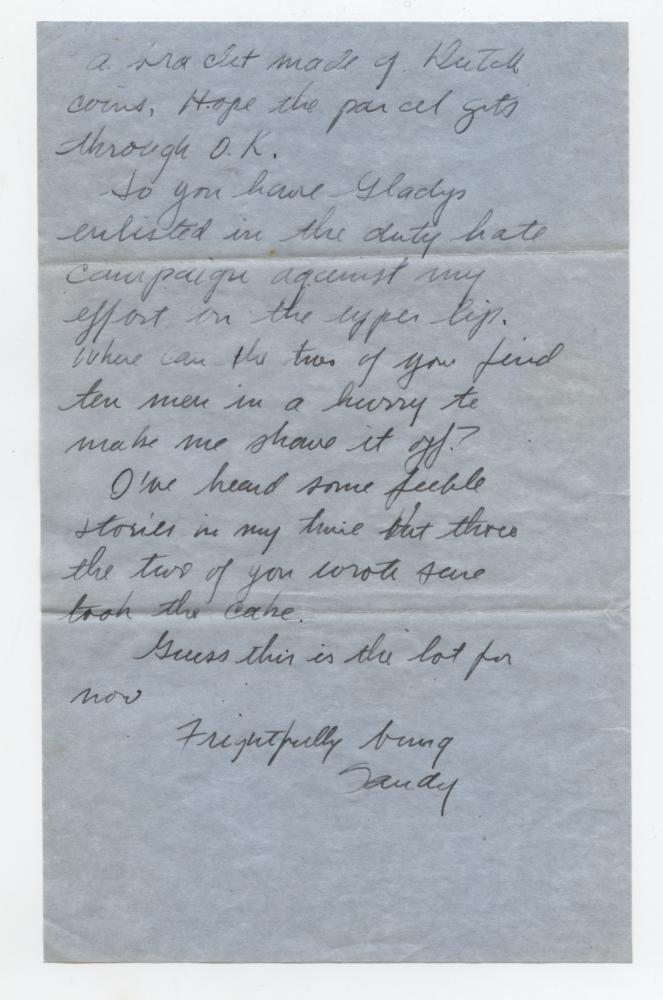 a braclet made of Dutch
coins. Hope the parcel gets
through O.K.
So you have Gladys
enlisted in the duty hate
campaign against my
effort on the upper lip.
Where can the two of you find
ten men in a hurry to
make me shave it off?
I've heard some feeble
stories in my time but
the two of you wrote sure
took the cake.
Guess this is the lot for
now
Frightfully
Sandy